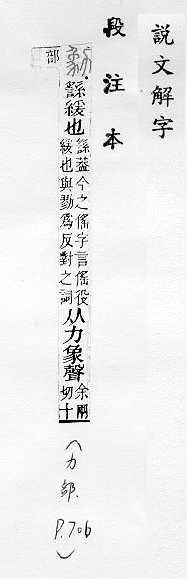 說文解字
段注本
繇緩也
繇葢今之傜字言傜役
緩也與勥爲反對之詞
从力象聲
余兩
切十
部
(力部. P.706)